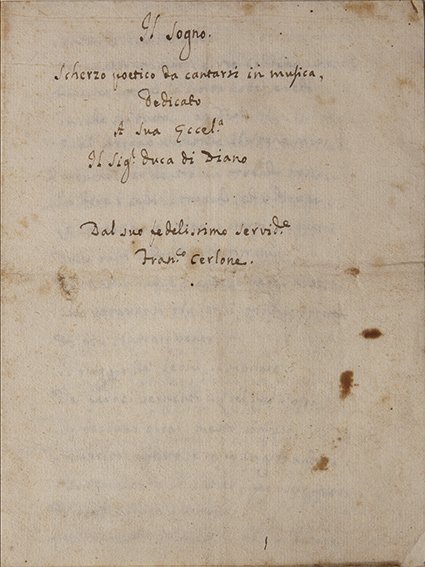 Il Sogno.
Scherzo poetico da cantarsi in musica,
Dedicato
A sua Eccel.ª
Il Sig.r Duca di Diano
Dal suo fedelissimo Servid.e
Fran.co Cerlone.